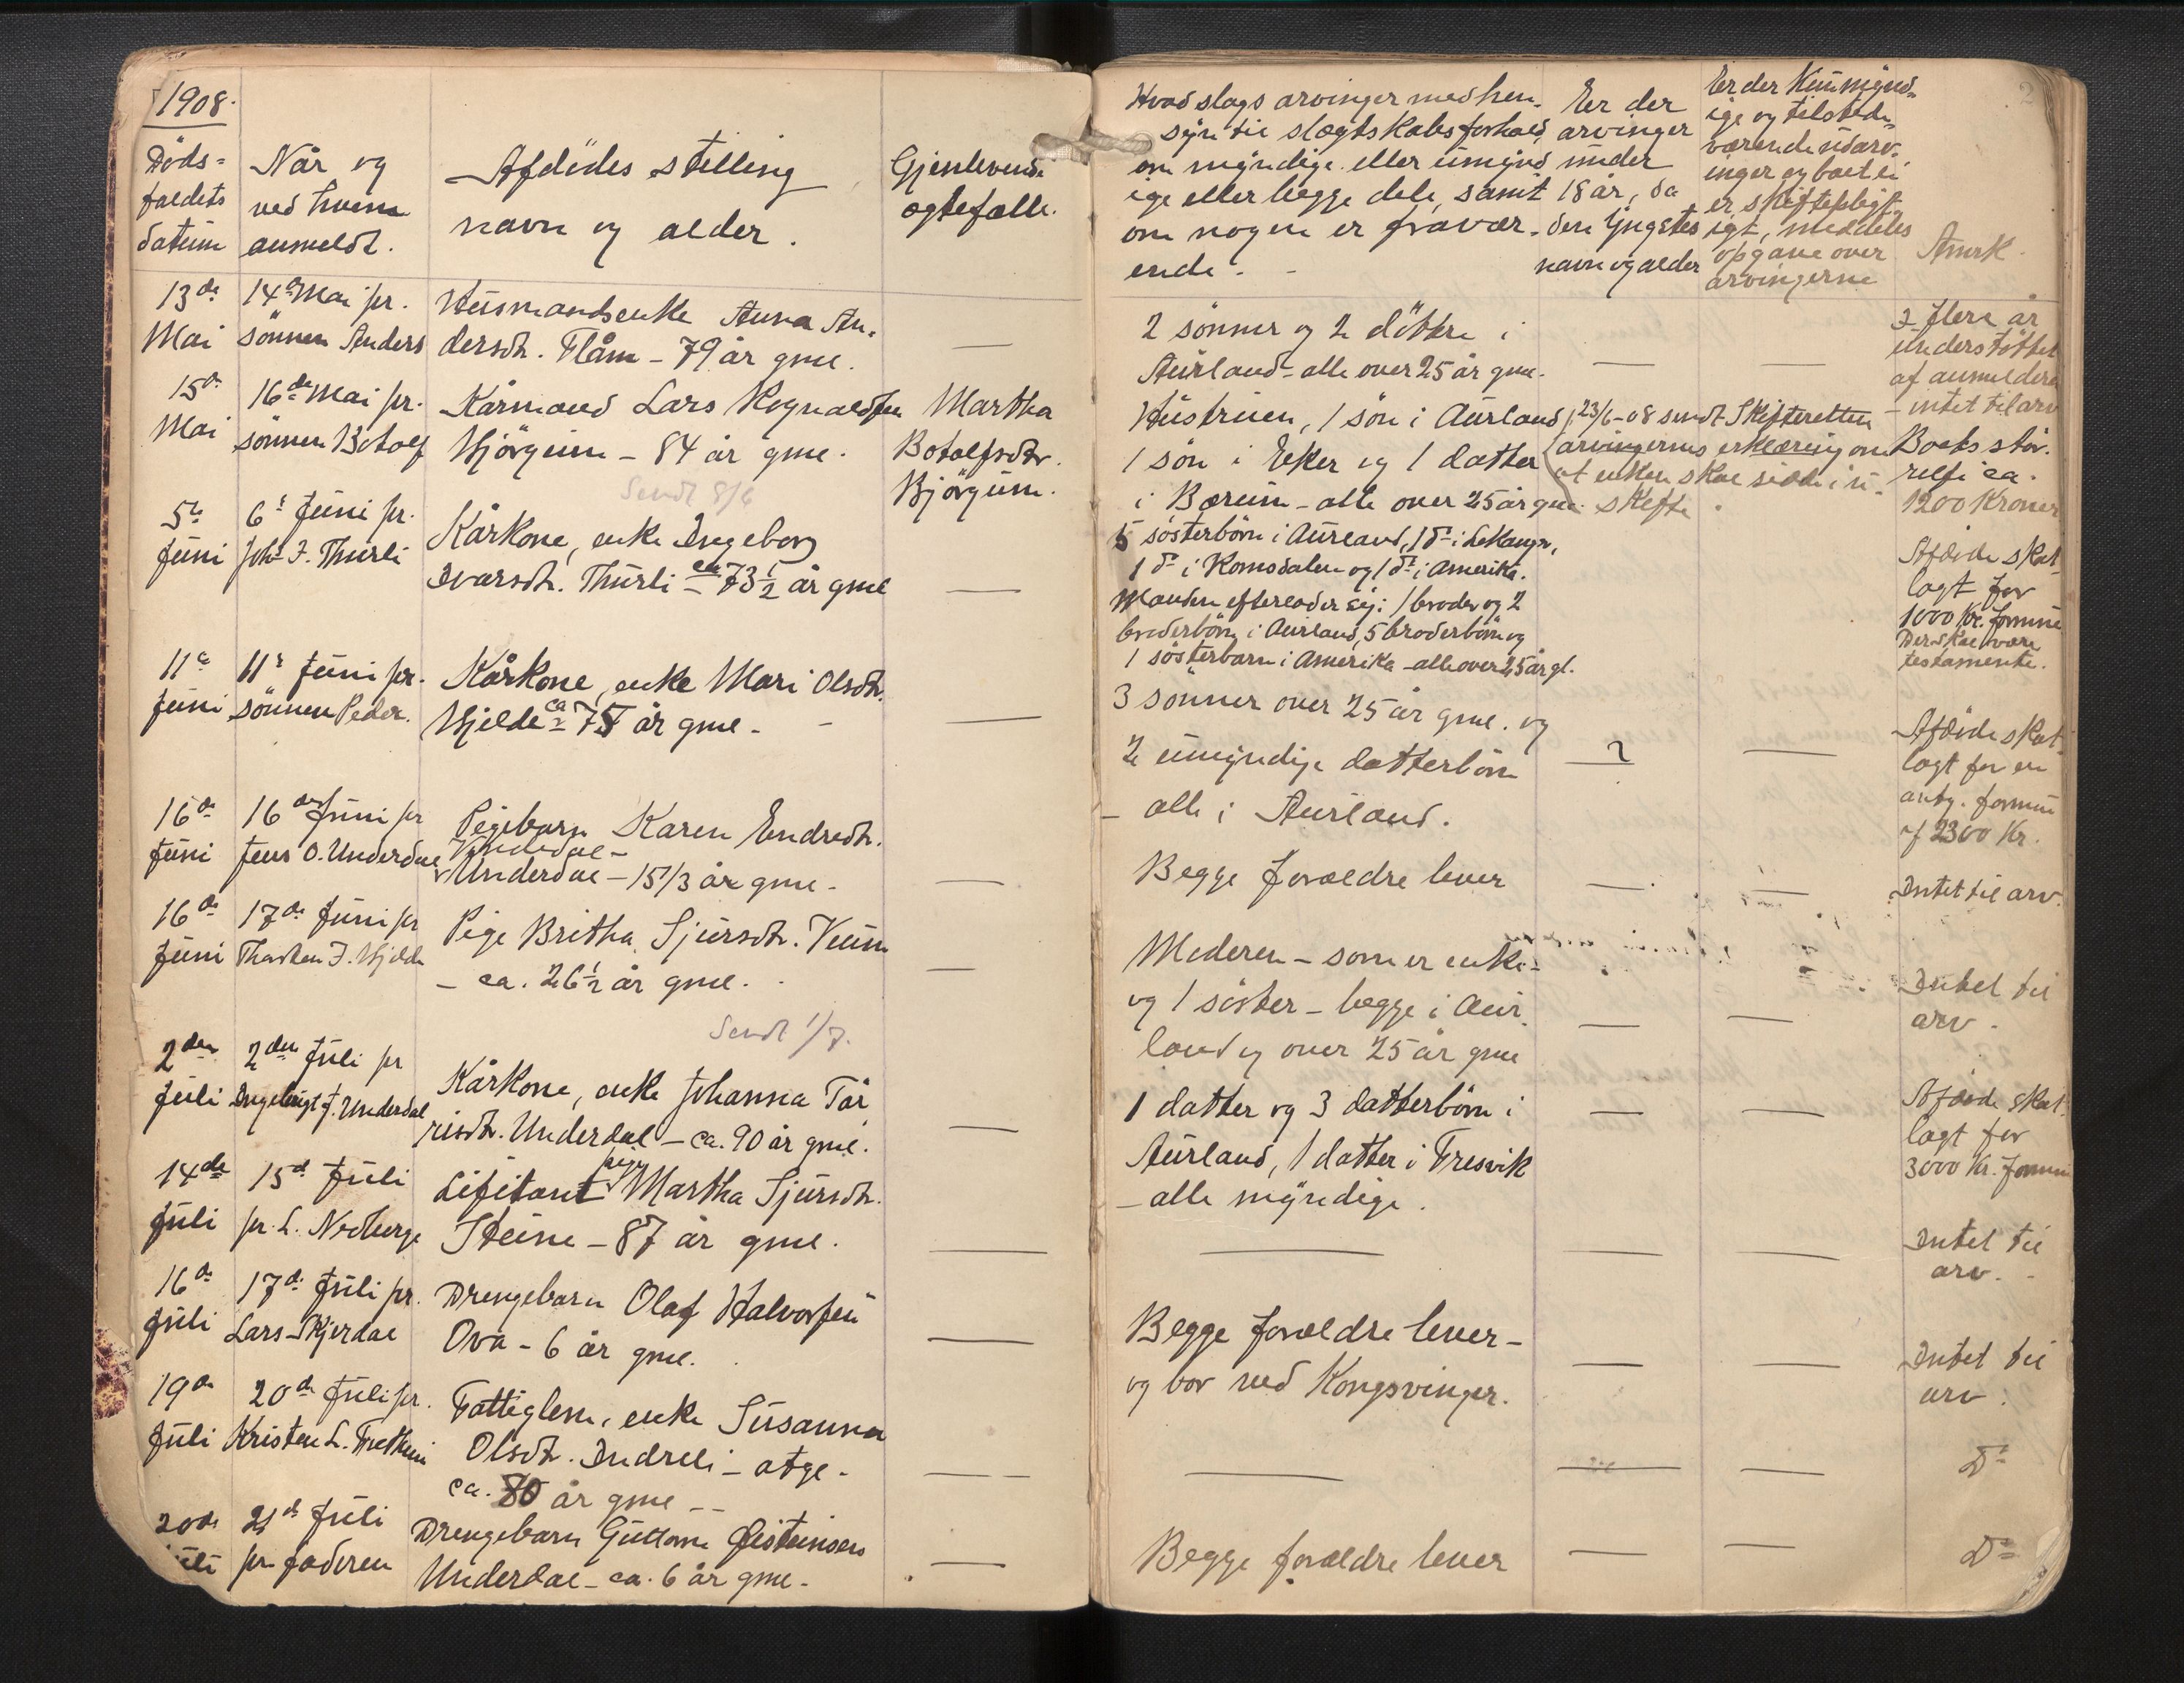 1908.
Döds-
faldets
datum
Når og
ved hvem
anmeldt.
Afdödes stilling
navn og alder.
Gjenlevende
ægtefælle.
13de
Mai
14de Mai pr.
sönnen Anders
Husmandsenke Anna An-
dersdtr. Flåm – 79 år gml.
—
15de
Mai
16de Mai pr.
sönnen Botolf
Kårmand Lars Rognaldsen
Bjørgum – 84 år gml.
Martha
Botolfsdtr.
Bjørgum.
Sendt 8/6
5te
Juni
6te Juni pr.
Johs J. Thurli
Kårkone, enke Ingeborg
Ivarsdtr. Thurli – ca 73½ år gml
—
11te
Juni
11te Juni pr.
sönnen Peder.
Kårkone, enke Mari Olsdtr.
Hjelde – ca 75 år gml. –
—
16de
Juni
16de Juni pr
Jens O. Underdal
Pigebarn Karen Endredtr.
Underdal – 15 1/3 år gml.
—
16de
Juni
17de Juni pr
Thorsten J. Hjelde
Pige Britha Sjursdtr. Veum
– ca. 26½ år gml.
—
Sendt 1/7.
2den
Juli
2den Juli pr
Ingebrigt J. Underdal
Kårkone, enke Johanna Tor
risdtr. Underdal – ca. 90 år gml.
—
14de
Juli
15de Juli
pr. L. Nedberge
Lifitant pige Martha Sjursdtr.
Steine – 87 år gml.
—
16de
Juli
17de Juli pr.
Lars Skjerdal
Drengebarn Olaf Halvorsen
Ova – 6 år gml.
—
19de
Juli
20de Juli pr.
Kristen L. Fretheim
Fattiglem, enke Susanna
Olsdtr. Indreli –
ca. 80 år gml –
—
20de
Juli
21de Juli
pr faderen
Drengebarn Guttorm Øisteinsen
Underdal – ca. 6 år gml.
—
2
Hvad slags arvinger med hen-
syn til slægtskabsforhold,
om myndige eller umynd
ige eller begge dele, samt
om nogen er fravær-
ende. –
Er der
arvinger
under
18 år, da
den yngstes
navn og alder
Er der kun mynd-
ige og tilstede-
værende udarv-
inger og boet ei
er skiftepligt-
igt, meddeles
opgave over
arvingerne
Anmk.
2 sönner og 2 döttre i
Aurland – alle over 25 år gml.
—
—
I flere år
understöttet
af anmelderen
– intet til arv
Hustruen, 1 sön i Aurland
1 sön i Eker og 1 datter
i Bærum – alle over 25 år gml.
23/6-08 sendt Skifteretten
arvingernes erklæring om
at enken skal sidde i u-
skifte.
Boets stör-
relse ca.
1200 Kroner
5 sösterbörn i Aurland, 1 do i Lekanger,
1 do i Romsdalen og 1 do i Amerika.
Manden efterlader sig: 1 broder og 2
broderbörn i Aurland, 5 broderbörn og
1 sösterbarn i Amerika – alle over 25 år gl.
Afdöde skat
lagt for
1000 Kr. formue
Der skal være
testamente.
3 sönner over 25 år gml. og
2 umyndige datterbörn
– alle i Aurland.
?
—
Afdöde skat-
lagt for en
antg. formue
af 2300 Kr.
Begge forældre lever
—
—
Intet til arv.
Moderen – som er enke –
og 1 söster – begge i Aur
land og over 25 år gml
—
—
Intet til
arv.
1 datter og 3 datterbörn i
Aurland, 1 datter i Fresvik
– alle myndige.
—
—
Afdöde skat
lagt for
3000 Kr. formue
—
—
—
Intet til
arv. –
Begge forældre lever –
og bor ved Kongsvinger.
—
—
Intet til
arv.
—
—
—
Do
Begge forældre lever
—
—
Do